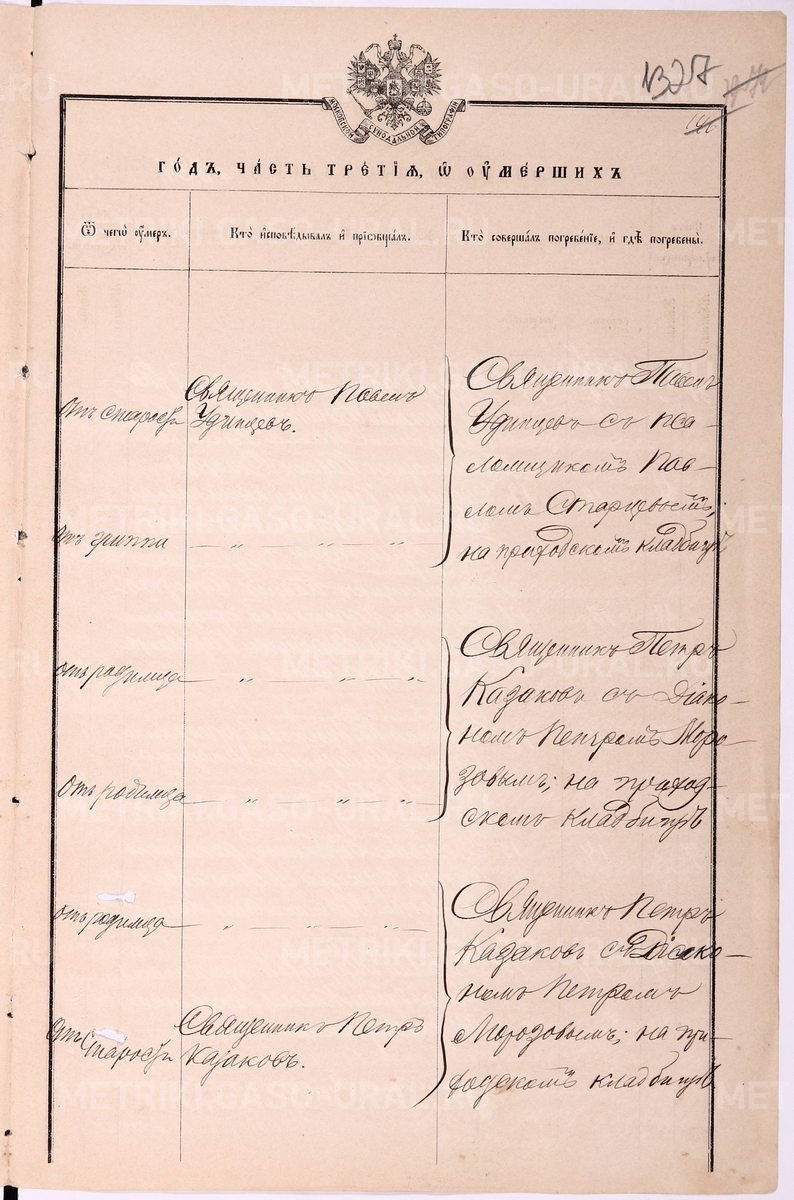 1327
МОСКОВСКОЙ СУНОДАЛЬНОЙ ТИПОГРАФІИ
ГО́ДЪ, ЧА́СТЬ ТРЕ́ТІѦ, Ѡ ОУМЕ́РШИХЪ
Ѿ чегѡ̀ оу́меръ.
Кто̀ и҆сповѣ́дывалъ и҆ прїѡбща́лъ.
Кто̀ соверша́лъ погребе́нїе, и҆ гдѣ̀ погребены̀.
Отъ старости
Священникъ Павелъ
Удинцевъ.
Священникъ Павелъ
Удинцевъ съ пса-
ломщикомъ Пав-
ломъ Старцевымъ;
на приходскомъ кладбищѣ
Отъ гриппа
— „ — „ — „ —
отъ родимца
— „ — „ — „ —
Священникъ Петръ
Казаковъ съ Діако-
номъ Петромъ Моро-
зовымъ; на приход-
скомъ кладбищѣ
Отъ родимца
— „ — „ — „ —
отъ родимца
— „ — „ — „ —
Священникъ Петръ
Казаковъ съ Діако-
номъ Петромъ
Морозовымъ; на при-
ходскомъ кладбищѣ
Отъ старости
Священникъ Петръ
Казаковъ.
METRIKI.GASO-URAL.RU